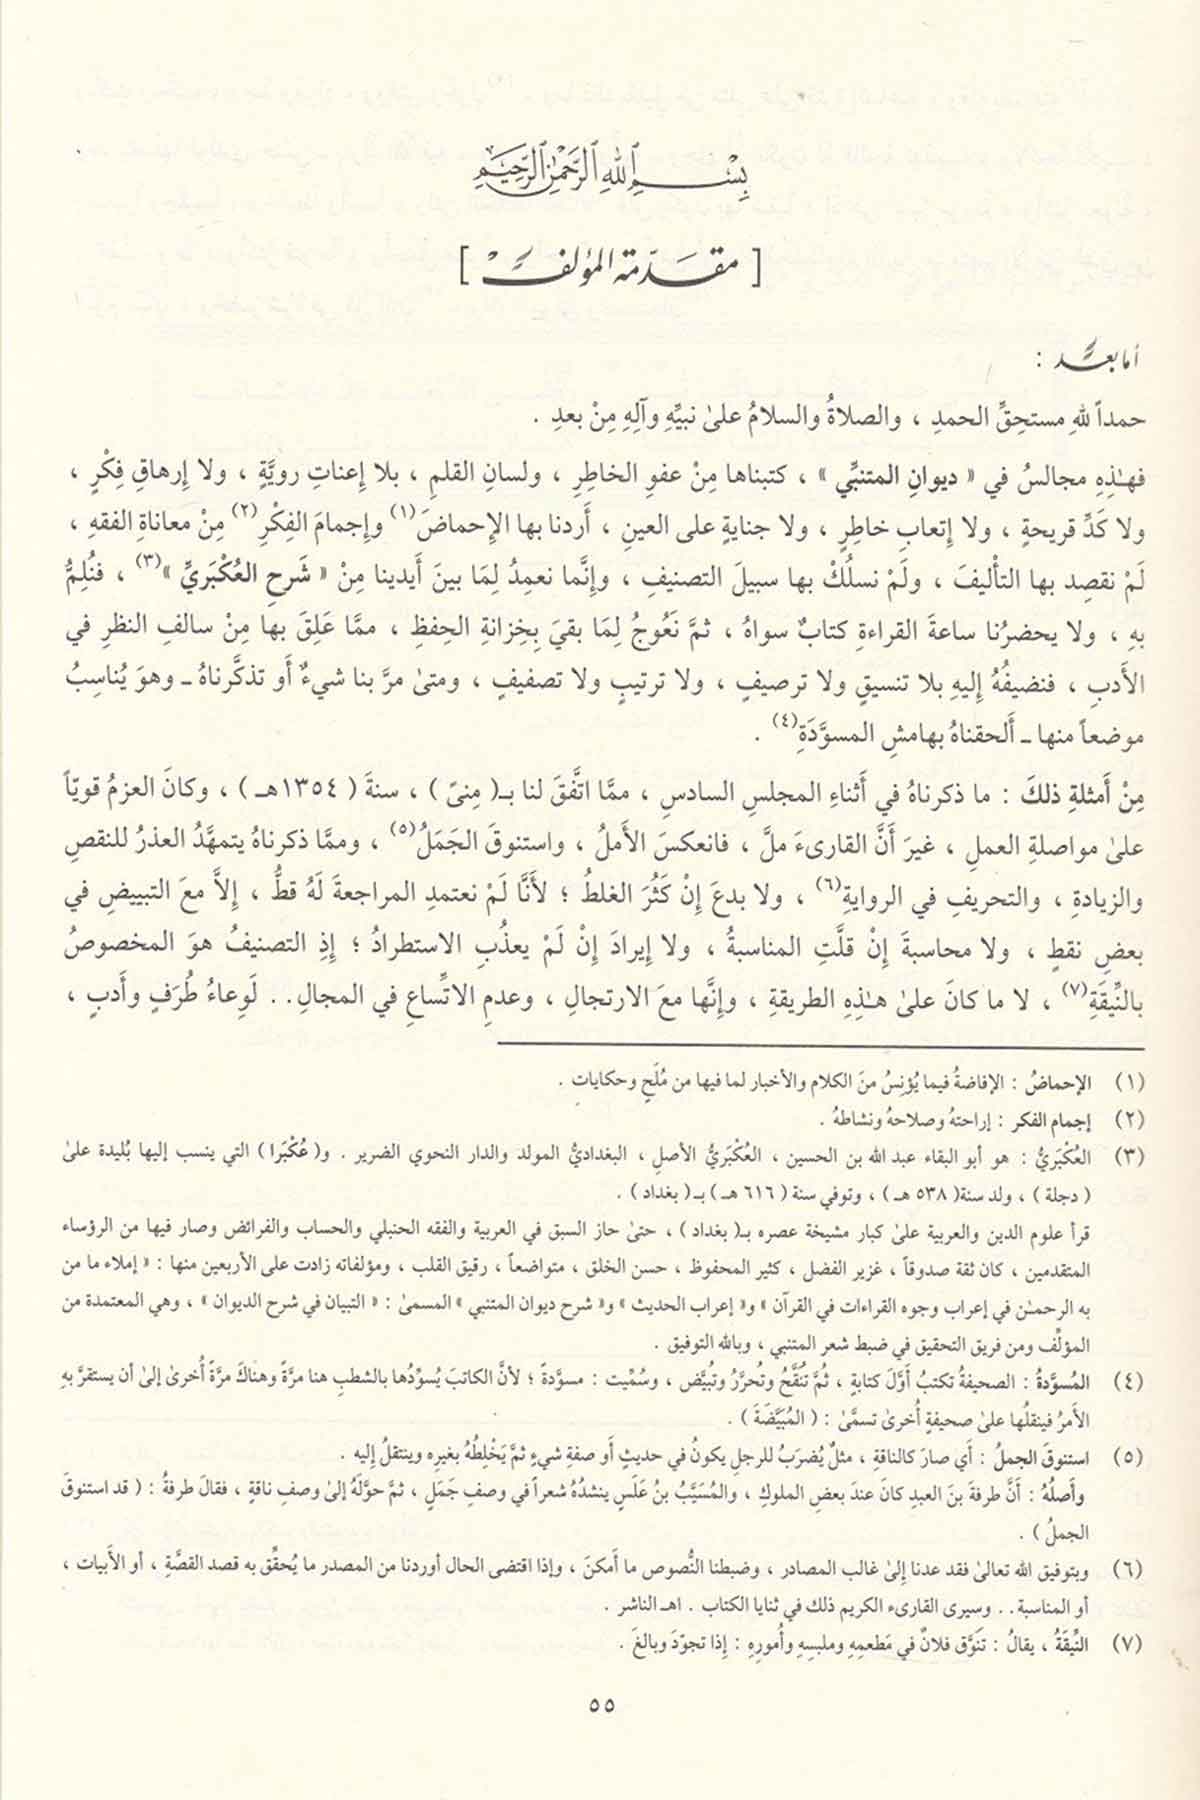 بِسْمِ اللهِ الرَّحْمٰنِ الرَّحِيْمِ
[ مقدّمة المؤلف ]
أما بعد :
حمداً للهِ مستحِقِّ الحمدِ ، والصلاةُ والسلامُ علىٰ نبيِّهِ وآلِهِ مِنْ بعدِ .
فهـٰذِهِ مجالسُ في « ديوانِ المتنبِّي » ، كتبناها مِنْ عفوِ الخاطِرِ ، ولسانِ القلمِ ، بلا إعناتِ رويَّةٍ ، ولا إرهاقِ فِكْرٍ ،
ولا كَدِّ قريحةٍ ، ولا إتعابِ خاطِرٍ ، ولا جنايةٍ على العينِ ، أردنا بها الإحماضَ(١) وإجمامَ الفِكْرِ(٢) مِنْ معاناةِ الفقهِ ،
لَمْ نقصِد بها التأليفَ ، ولَمْ نسلُكْ بها سبيلَ التصنيفِ ، وإنَّما نعمِدُ لِمَا بينَ أيدينا مِنْ « شَرحِ العُكْبَريِّ »(٣) ، فنُلِمُّ
بهِ ، ولا يحضرُنا ساعةَ القراءةِ كتابٌ سواهُ ، ثمَّ نَعُوجُ لِمَا بقيَ بِخِزانةِ الحِفظِ ، ممَّا عَلِقَ بها مِنْ سالفِ النظرِ في
الأدبِ ، فنضيفُهُ إليهِ بلا تنسيقٍ ولا ترصيفٍ ، ولا ترتيبٍ ولا تصفيفٍ ، ومتىٰ مرَّ بنا شيءٌ أو تذكَّرناهُ ـ وهوَ يُناسِبُ
موضعاً منها ـ ألحقناهُ بهامشِ المسوَّدَةِ(٤) .
مِنْ أمثلةِ ذلكَ : ما ذكرناهُ في أثناءِ المجلسِ السادسِ ، ممَّا اتَّفقَ لنا بـ( مِنىً ) ، سنةَ ( ١٣٥٤هـ ) ، وكانَ العزمُ قويّاً
علىٰ مواصلةِ العملِ ، غيرَ أنَّ القارىءَ ملَّ ، فانعكسَ الأملُ ، واستنوقَ الجَمَلُ(٥) ، وممَّا ذكرناهُ يتمهَّدُ العذرُ للنقصِ
والزيادةِ ، والتحريفِ في الروايةِ(٦) ، ولا بدعَ إنْ كَثُرَ الغلطُ ؛ لأنَّا لَمْ نعتمدِ المراجعةَ لَهُ قطُّ ، إلاَّ معَ التبييضِ في
بعضِ نقطٍ ، ولا محاسبةَ إنْ قلَّتِ المناسبةُ ، ولا إيرادَ إنْ لَمْ يعذُبِ الاستطرادُ ؛ إذِ التصنيفُ هوَ المخصوصُ
بالنِّيقَةِ(٧) ، لا ما كانَ علىٰ هـٰذِهِ الطريقةِ ، وإنَّها معَ الارتجالِ ، وعدمِ الاتِّساعِ في المجالِ.. لَوِعاءُ طُرَفٍ وأدبٍ ،
(١) الإحماضُ : الإفاضةُ فيما يُؤنِسُ منَ الكلام والأخبار لما فيها من مُلَحٍ وحكاياتٍ .
(٢) إجمام الفكر : إراحتهُ وصلاحهُ ونشاطهُ .
(٣) العُكْبَريُّ : هو أبو البقاء عبد الله بن الحسين ، العُكْبَريُّ الأصلِ ، البغداديُّ المولد والدار النحوي الضرير . و( عُكْبَرا ) التي ينسب إليها بُليدة علىٰ
( دجلة ) ، ولد سنة ( ٥٣٨ هـ ) ، وتوفي سنة ( ٦١٦ هـ ) بـ( بغداد ) .
قرأ علوم الدين والعربية علىٰ كبار مشيخة عصره بـ( بغداد ) ، حتىٰ حاز السبق في العربية والفقه الحنبلي والحساب والفرائض وصار فيها من الرؤساء
المتقدمين ، كان ثقة صدوقاً ، غزير الفضل ، كثير المحفوظ ، حسن الخلق ، متواضعاً ، رقيق القلب ، ومؤلفاته زادت على الأربعين منها : « إملاء ما من
به الرحمـٰن في إعراب وجوه القراءات في القرآن » و« إعراب الحديث » و« شرح ديوان المتنبي » المسمىٰ : « التبيان في شرح الديوان » ، وهي المعتمدة من
المؤلِّف ومن فريق التحقيق في ضبط شعر المتنبي ، وبالله التوفيق .
(٤) المُسوَّدةُ : الصحيفةُ تكتبُ أوَّلَ كتابةٍ ، ثُمَّ تُنقَّحُ وتُحرَّرُ وتُبيَّض ، وسُمِّيت : مسوَّدةً ؛ لأنَّ الكاتبَ يُسوِّدُها بالشطبِ هنا مرَّةً وهناكَ مرَّةً أُخرىٰ إلىٰ أن يستقرَّ بهِ
الأمرُ فينقلُها علىٰ صحيفةٍ أُخرىٰ تسمَّىٰ : ( المُبَيَّضَةَ ) .
(٥) استنوقَ الجملُ : أي صار كالناقةِ ، مثلٌ يُضرَبُ للرجلِ يكونُ في حديثٍ أو صفةِ شيءٍ ثمَّ يَخْلِطُهُ بغيرِه وينتقلُ إليه .
وأصلُهُ : أنَّ طرفةَ بنَ العبدِ كانَ عندَ بعضِ الملوكِ ، والمُسَيَّبُ بنُ عَلَسٍ ينشدُهُ شعراً في وصفِ جَمَلٍ ، ثمَّ حوَّلَهُ إلىٰ وصفِ ناقةٍ ، فقالَ طرفةُ : ( قد استنوقَ
الجملُ ) .
(٦) وبتوفيق الله تعالىٰ فقد عدنا إلىٰ غالب المصادر ، وضبطنا النُّصوص ما أمكنَ ، وإذا اقتضى الحال أوردنا من المصدر ما يُحقِّق به قصد القصَّةِ ، أو الأبيات ،
أو المناسبة.. وسيرى القارىء الكريم ذلك في ثنايا الكتاب . اهـ الناشر .
(٧) النِّيقَةُ ، يقالُ : تَنَوَّق فلانٌ في مَطعمِهِ وملبسِهِ وأُمورِهِ : إذا تجوّدَ وبالغَ .
٥٥